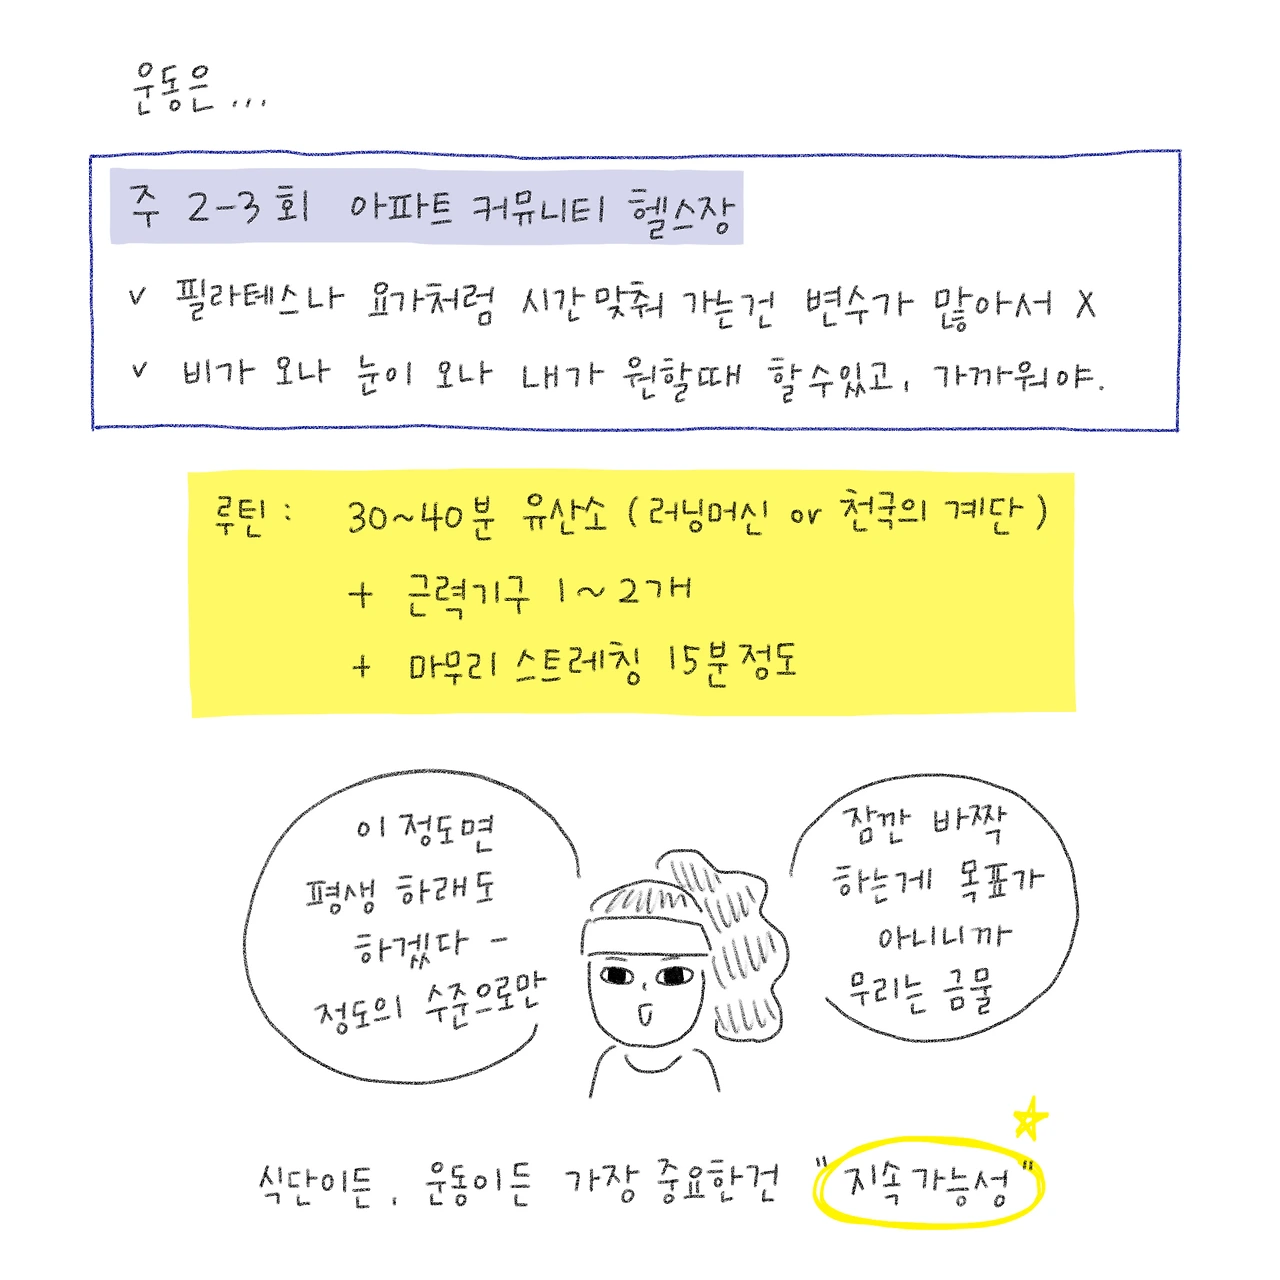 운동은...
주 2-3회 아파트 커뮤니티 헬스장
v 필라테스나 요가처럼 시간맞춰 가는건 변수가 많아서 X
v 비가 오나 눈이 오나 내가 원할때 할수있고, 가까워야.
루틴: 30~40분 유산소 (러닝머신 or 천국의 계단)
+ 근력기구 1~2개
+ 마무리 스트레칭 15분정도
이 정도면
평생 하래도
하겠다 -
정도의 수준으로만
잠깐 바짝
하는게 목표가
아니니까
무리는 금물
식단이든, 운동이든 가장 중요한건 "지속가능성"